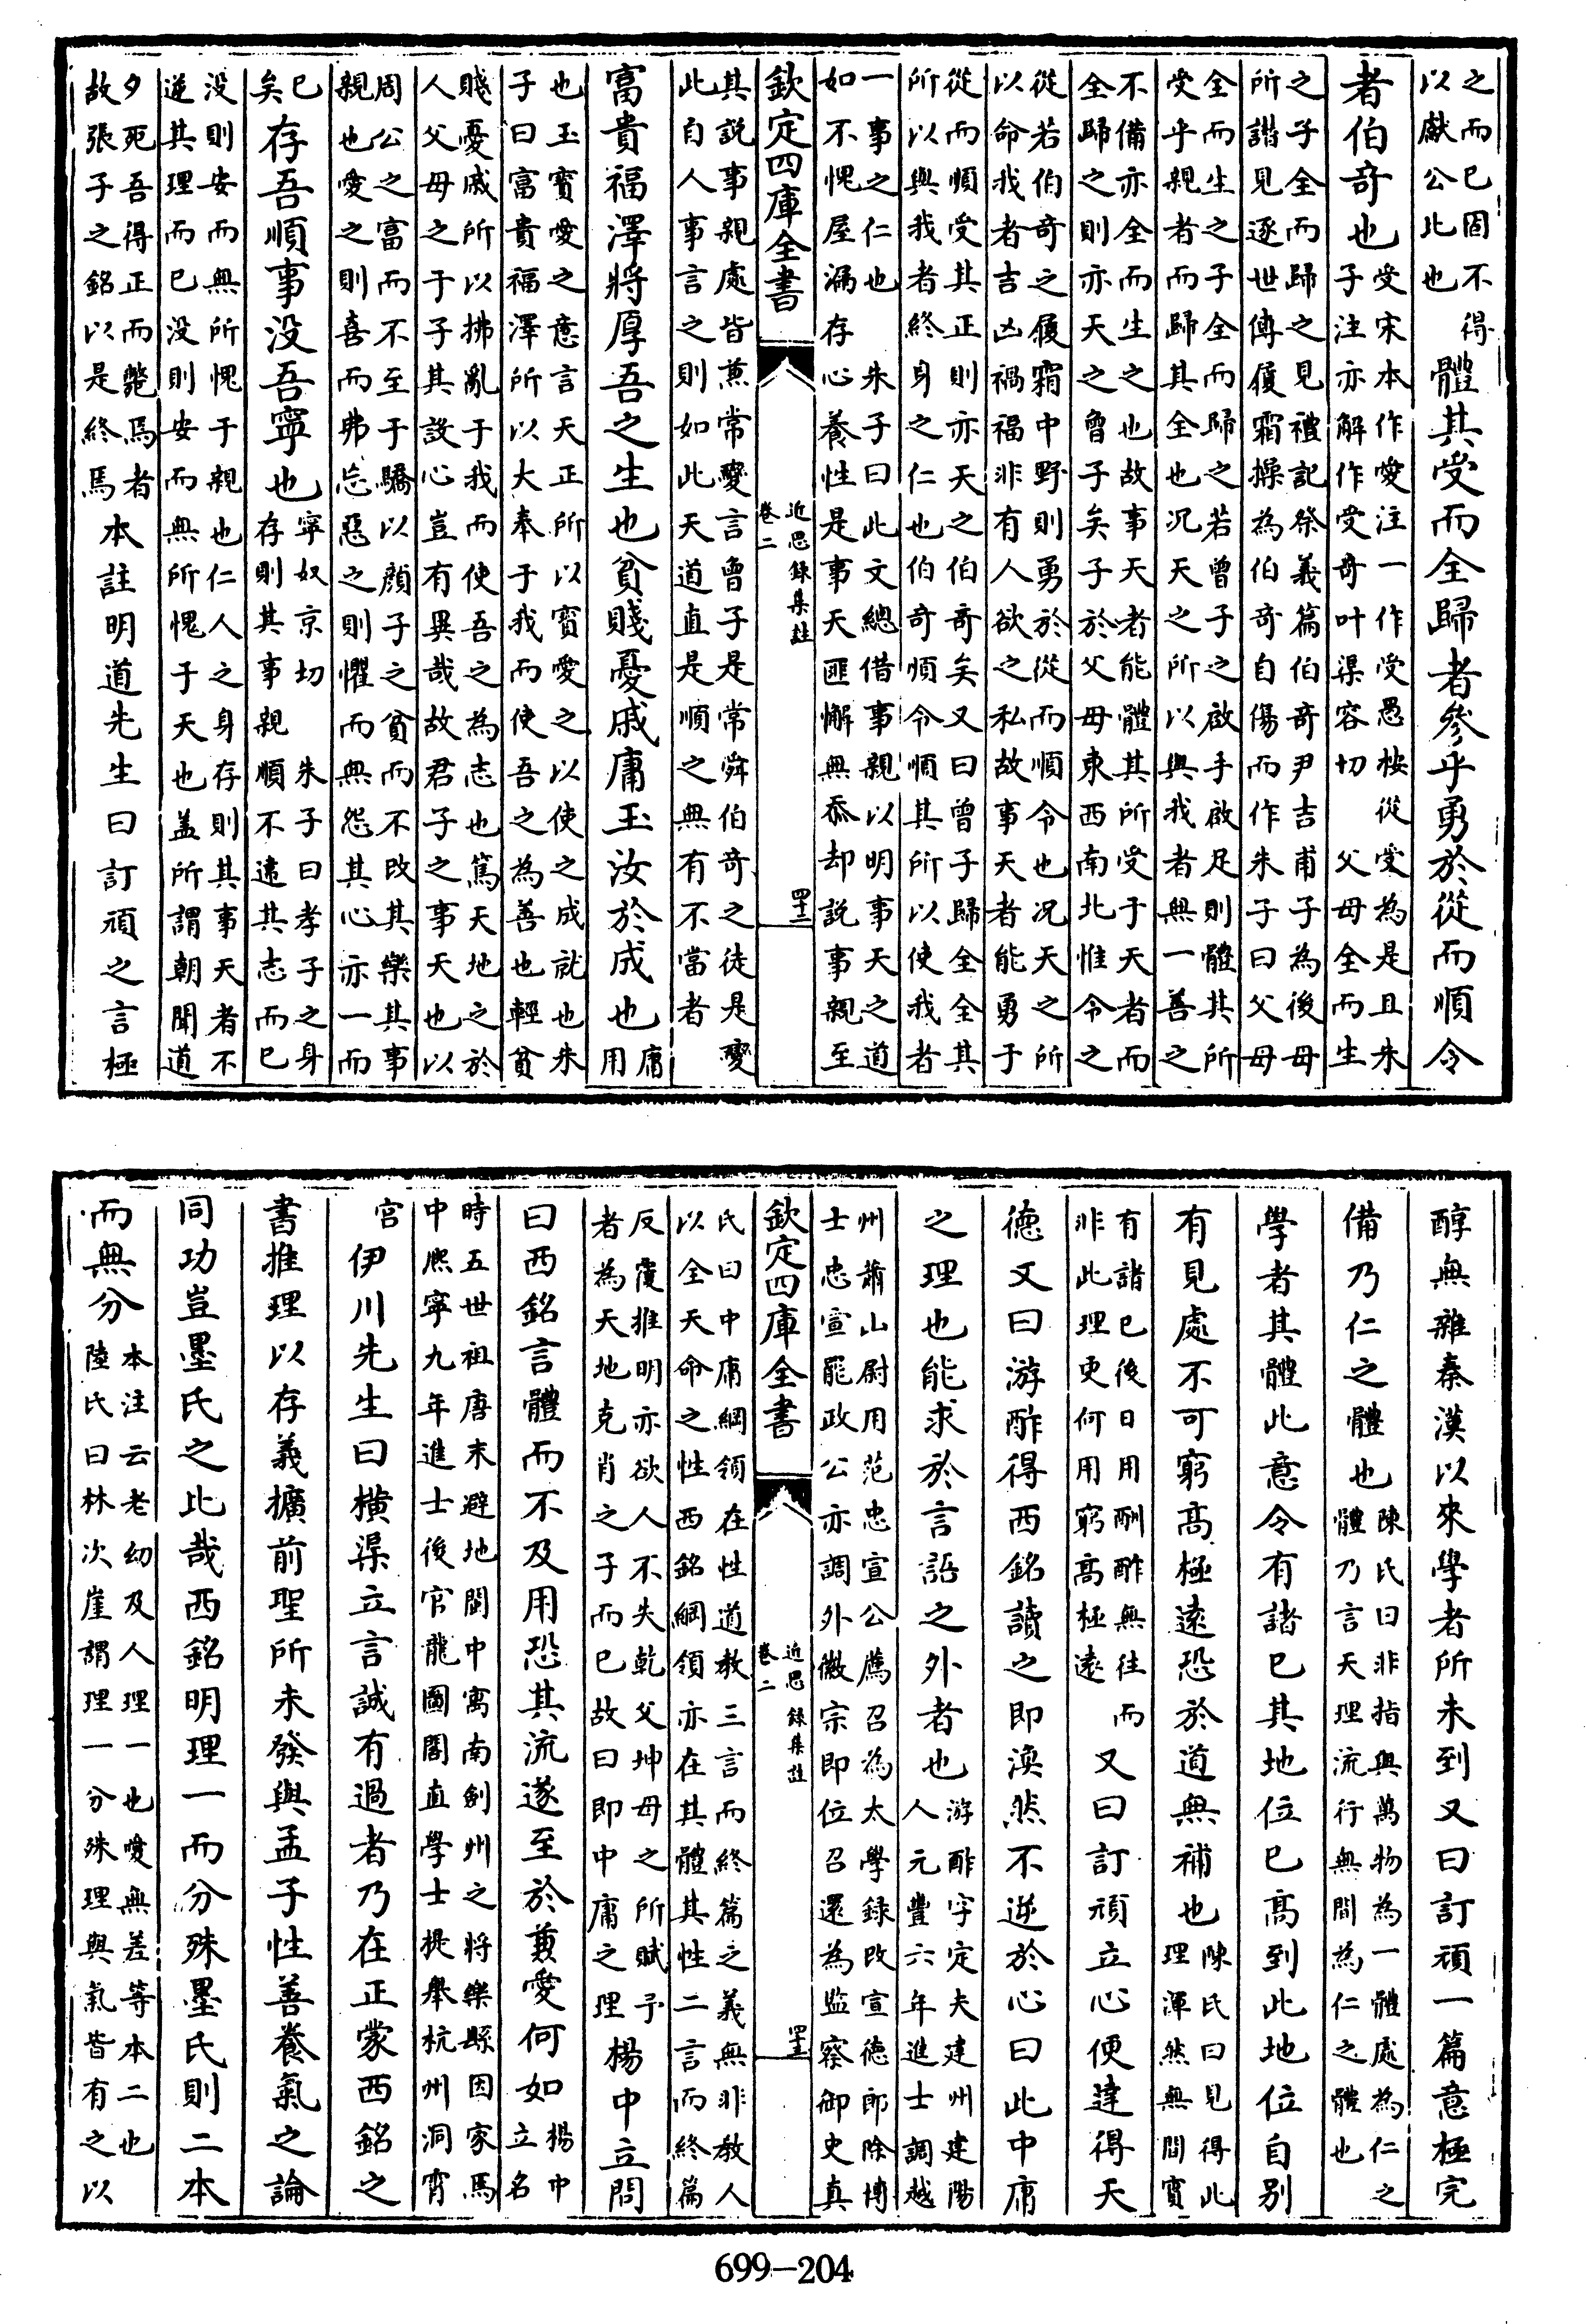 之而已固不得
以獻公此也
體其受而全歸者參乎勇於從而順令
者伯奇也
受宋本作愛注一作受愚按從受為是且朱
子注亦解作受奇叶渠容切 父母全而生
之子全而歸之見禮記祭義篇伯奇尹吉甫子為後母
所譖見逐世傳履霜操為伯奇自傷而作朱子曰父母
全而生之子全而歸之若曾子之啟手啟足則體其所
受乎親者而歸其全也況天之所以與我者無一善之
不備亦全而生之也故事天者能體其所受于天者而
全歸之則亦天之曾子矣子於父母東西南北惟令之
從若伯奇之履霜中野則勇於從而順令也況天之所
以命我者吉凶禍福非有人欲之私故事天者能勇于
從而順受其正則亦天之伯奇矣又曰曾子歸全全其
所以與我者終身之仁也伯奇順令順其所以使我者
一事之仁也 朱子曰此文總借事親以明事天之道
如不愧屋漏存心養性是事天匪懈無忝却說事親至
欽定四庫全書
近思錄集註
卷二
四十二
其說事親處皆兼常變言曾子是常舜伯奇之徒是變
此自人事言之則如此天道直是順之無有不當者
富貴福澤將厚吾之生也貧賤憂戚庸玉汝於成也
庸
用
也玉寳愛之意言天正所以寳愛之以使之成就也朱
子曰富貴福澤所以大奉于我而使吾之為善也輕貧
賤憂戚所以拂亂于我而使吾之為志也篤天地之於
人父母之于子其設心豈有異哉故君子之事天也以
周公之富而不至于驕以顔子之貧而不改其樂其事
親也愛之則喜而弗忘惡之則懼而無怨其心亦一而
已
矣
存吾順事没吾寧也
寧奴京切 朱子曰孝子之身
存則其事親順不違其志而已
没則安而無所愧于親也仁人之身存則其事天者不
逆其理而已没則安而無所愧于天也盖所謂朝聞道
夕死吾得正而斃焉者
故張子之銘以是終焉
本註明道先生曰訂頑之言極
醇無雜秦漢以來學者所未到又曰訂頑一篇意極完
備乃仁之體也
陳氏曰非指與萬物為一體處為仁之
體乃言天理流行無間為仁之體也
學者其體此意令有諸已其地位已高到此地位自别
有見處不可窮高極遠恐於道無補也
陳氏曰見得此
理渾然無間實
有諸已後日用酬酢無往而
非此理更何用窮高極遠
又曰訂頑立心便達得天
德又曰游酢得西銘讀之即渙然不逆於心曰此中庸
之理也能求於言語之外者也
游酢字定夫建州建陽
人元豐六年進士調越
州蕭山尉用范忠宣公薦召為太學録改宣德郎除博
士忠宣罷政公亦調外徽宗即位召還為監察御史真
欽定四庫全書
近思錄集註
卷二
四十三
氏曰中庸綱領在性道教三言而終篇之義無非教人
以全天命之性西銘綱領亦在其體其性二言而終篇
反覆推明亦欲人不失乾父坤母之所賦予
者為天地克肖之子而已故曰即中庸之理
楊中立問
曰西銘言體而不及用恐其流遂至於兼愛何如
楊中
立名
時五世祖唐末避地閩中寓南劍州之將樂縣因家焉
中熙寧九年進士後官龍圖閣直學士提舉杭州洞霄
宫
伊川先生曰橫渠立言誠有過者乃在正蒙西銘之
書推理以存義擴前聖所未發與孟子性善養氣之論
同功豈墨氏之比哉西銘明理一而分殊墨氏則二本
而無分
本注云老幼及人理一也愛無差等本二也
陸氏曰林次崖謂理一分殊理與氣皆有之以
699-204